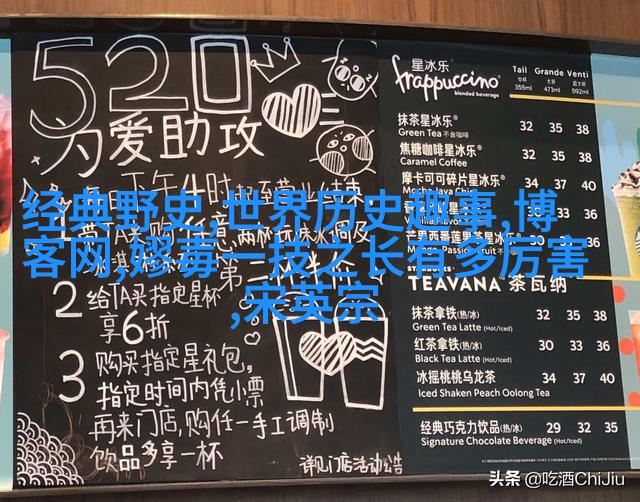 520
为爱助攻
经典野史,世界历史趣事,博
客网,嫪毐一技之长有多厉害
,宋英宗
2 给TA买指定星杯
享6折
3 购买指定星礼包,
指定时间内凭小票
再来门店,购任一手工调制
饮品多享一杯
详见门店活动公告
星冰乐®
frappuccino®
blended beverage
Tall Grande Venti
中杯 大杯 超大杯
355ml 473ml 592ml
抹茶星冰乐® 32 35 38
Green Tea 不含咖啡
焦糖咖啡星冰乐® 32 35 38
Caramel Coffee
摩卡可可碎片星冰乐® 34 37 40
Mocha Java Chip
TEAVANA™ 茶瓦纳
抹茶拿铁(热/冰) 32 35 38
Green Tea Latte (Hot/Iced)
红茶拿铁(热/冰) 30 33 36
Black Tea Latte (Hot/Iced)
冰摇桃桃乌龙茶 34 37 40
Iced Shaken Peach Oolong Tea
经典巧克力饮品(热/冰) 29 32 35
Signature Chocolate Beverage (Hot/Iced)
头条 @吃酒ChiJiu